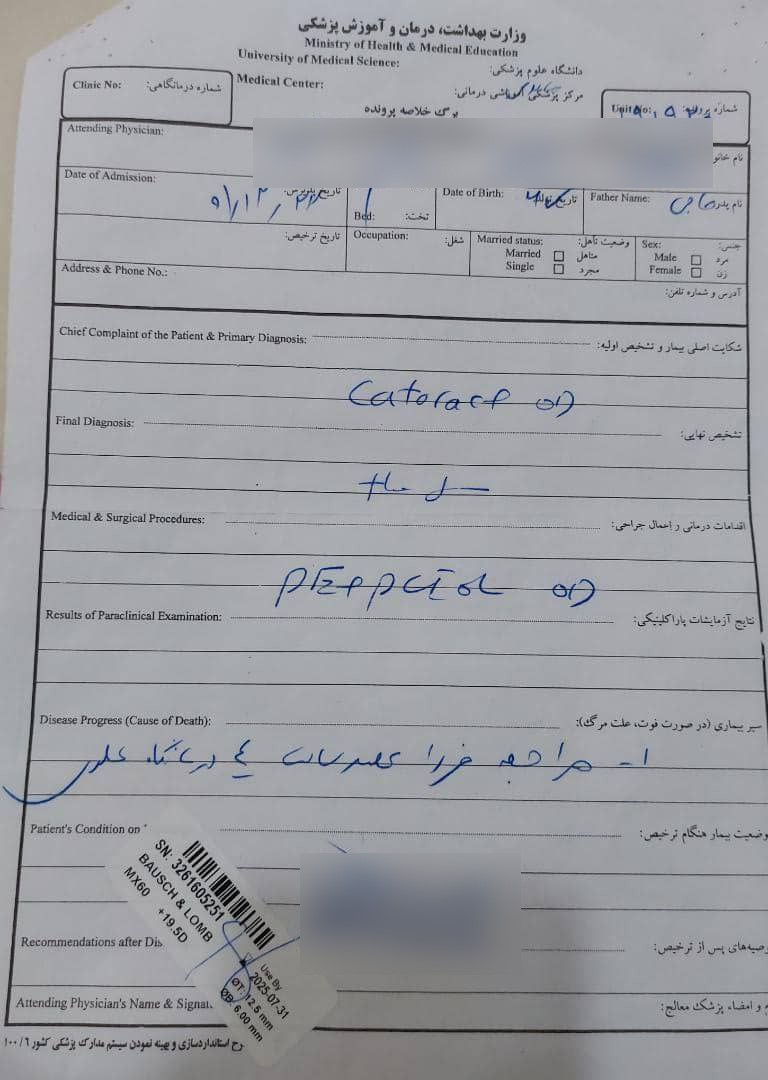 وزارت بهداشت، درمان و آموزش پزشکی
Ministry of Health & Medical Education
دانشگاه علوم پزشکی:
University of Medical Science:
مرکز پزشکی آموزشی درمانی:
Medical Center:
شماره درمانگاهی:
Clinic No:
شماره پرونده:
Unit No:
برگ خلاصه پرونده
Attending Physician:
نام خانو
Date of Admission:
تاریخ پذیرش:
Date of Birth:
تاریخ تولد:
Father Name:
نام پدر:
Bed:
تخت:
تاریخ ترخیص:
Occupation:
شغل:
Married status:
وضعیت تأهل:
Married
متاهل
Single
مجرد
Sex:
جنس:
Male
مرد
Female
زن
Address & Phone No.:
آدرس و شماره تلفن:
Chief Complaint of the Patient & Primary Diagnosis:
شکایت اصلی بیمار و تشخیص اولیه:
Cataract OD
Final Diagnosis:
تشخیص نهایی:
Medical & Surgical Procedures:
اقدامات درمانی و اعمال جراحی:
OD
Results of Paraclinical Examination:
نتایج آزمایشات پاراکلینیکی:
Disease Progress (Cause of Death):
سیر بیماری (در صورت فوت، علت مرگ):
۱- مراجعه فردا عصر ساعت ۴ درمانگاه
Patient's Condition on
وضعیت بیمار هنگام ترخیص:
SN: 3261605251
BAUSCH & LOMB
MX60 +19.5D
Use By
2025-07-31
ØT: 12.5 mm
ØB: 6.00 mm
Recommendations after Dis
صیه‌های پس از ترخیص:
Attending Physician's Name & Signat
م و امضاء پزشک معالج:
رح استانداردسازی و بهینه نمودن سیستم مدارک پزشکی کشور ۱۰۰/۶